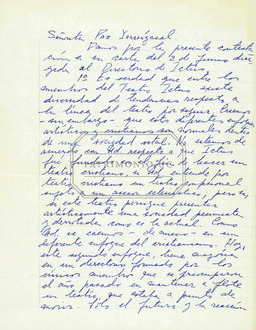 Señorita Paz Yrarrázaval
Damos por la presente contesta-
ción a su carta del 2 de Junio diri-
gida al Directorio de Ictus
1º Es verdad que entre los
miembros del Teatro Ictus existe
diversidad de tendencias respecto a
la línea del teatro por seguir. Creemos
- sin embargo - que estos diferentes enfoques
artísticos y cristianos son normales dentro
de una sociedad actual. No estamos de
acuerdo con Ud respecto a que Ictus
fue fundado con el fin de hacer un
teatro cristiano, si Ud entiende por
teatro cristiano un teatro confesional
sujeto a un
este teatro persigue presentar
artísticamente una sociedad
y derrotada como es la actual. Como
Ud, se caemos - de nuevo - en un
diferente enfoque del cristianismo. Hoy,
este segundo enfoque, tiene mayoría
en un directorio formado por los
mismos miembros que se preocuparon
el año pasado en mantener a flote
un teatro, que estaba a punto de
morir. Pero el futuro y la reacción
PATRIMONIO